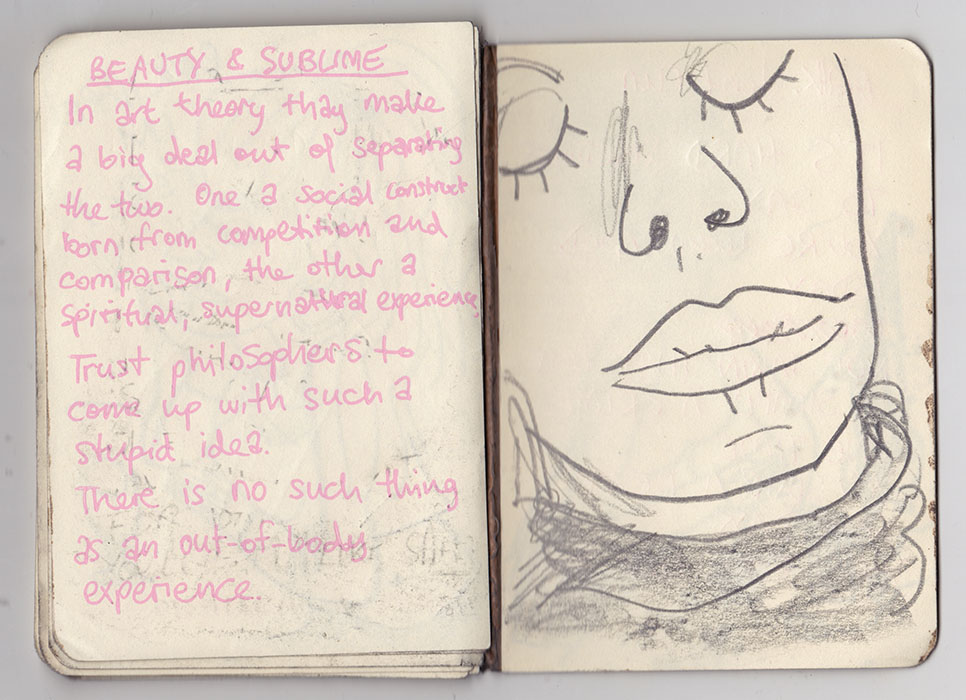 BEAUTY & SUBLIME
In art theory thay make
a big deal out of separating
the two. One a social construct
born from competition and
comparison, the other a
spiritual, supernatural experience
Trust philosophers to
come up with such a
stupid idea.
There is no such thing
as an out-of-body
experience.